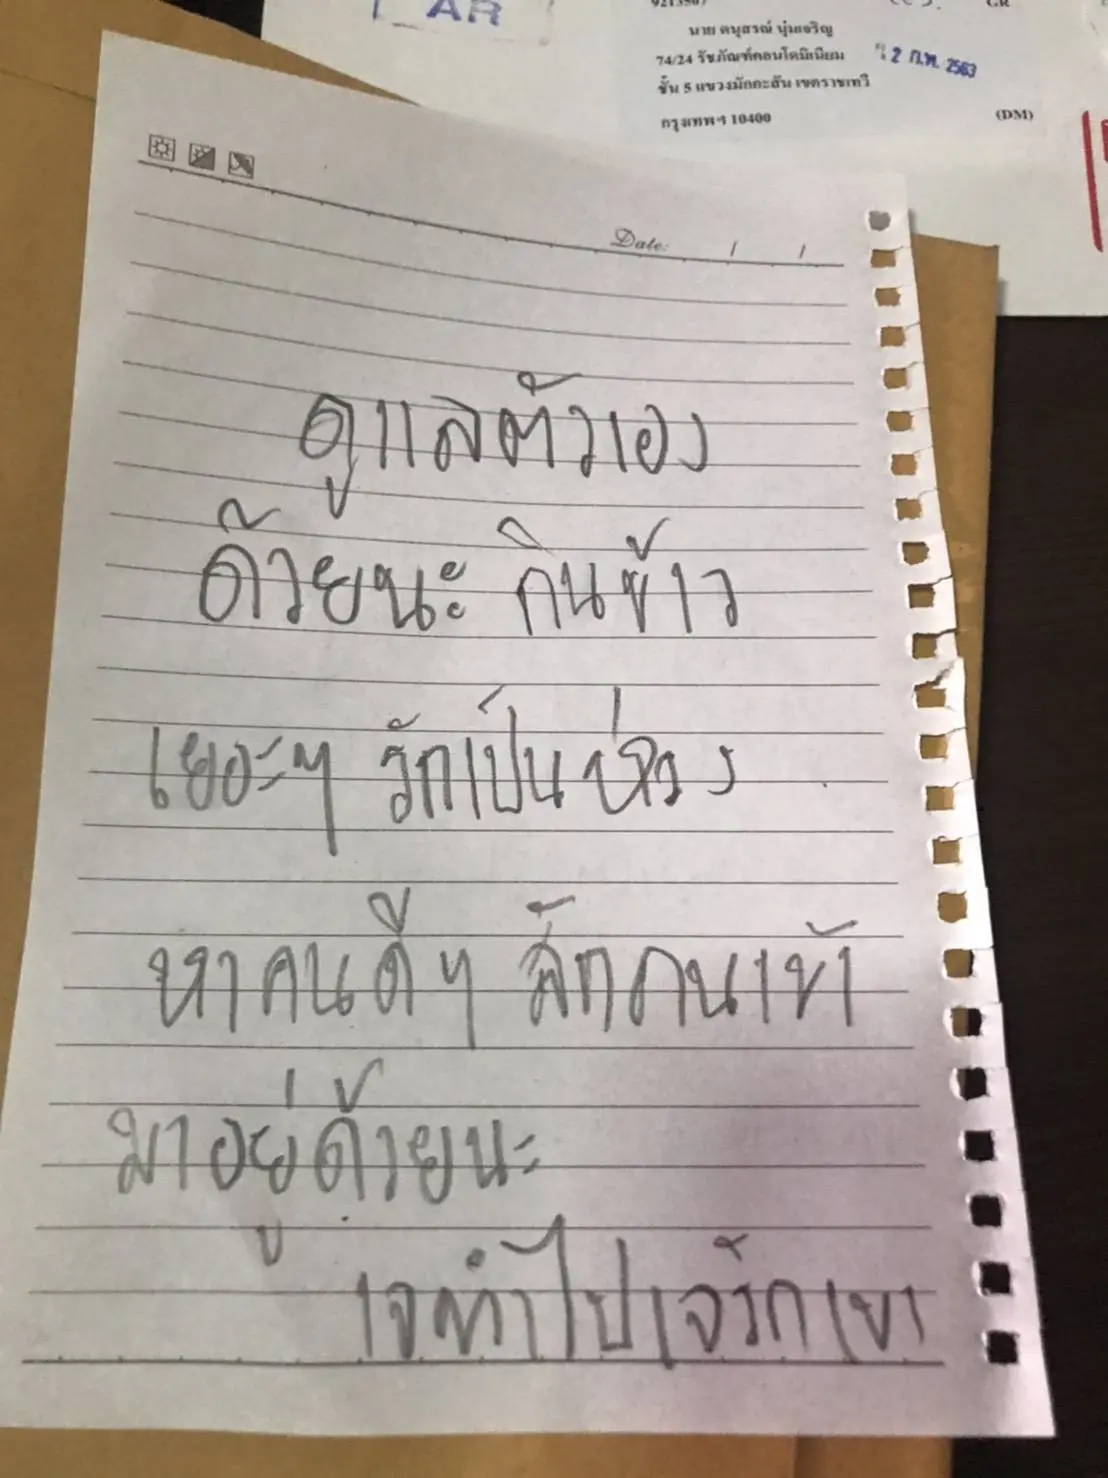 AR
9213507
GR
นาย ดนุสรณ์ นุ่มเจริญ
74/24 รัชภัณฑ์คอนโดมิเนียม
12 ก.พ. 2563
ชั้น 5 แขวงมักกะสัน เขตราชเทวี
กรุงเทพฯ 10400
(DM)
Date: / /
ดูแลตัวเอง
ด้วยนะ กินข้าว
เยอะๆ รักเป็นห่วง
หาคนดีๆ สักคนเข้า
มาอยู่ด้วยนะ
รักเขา